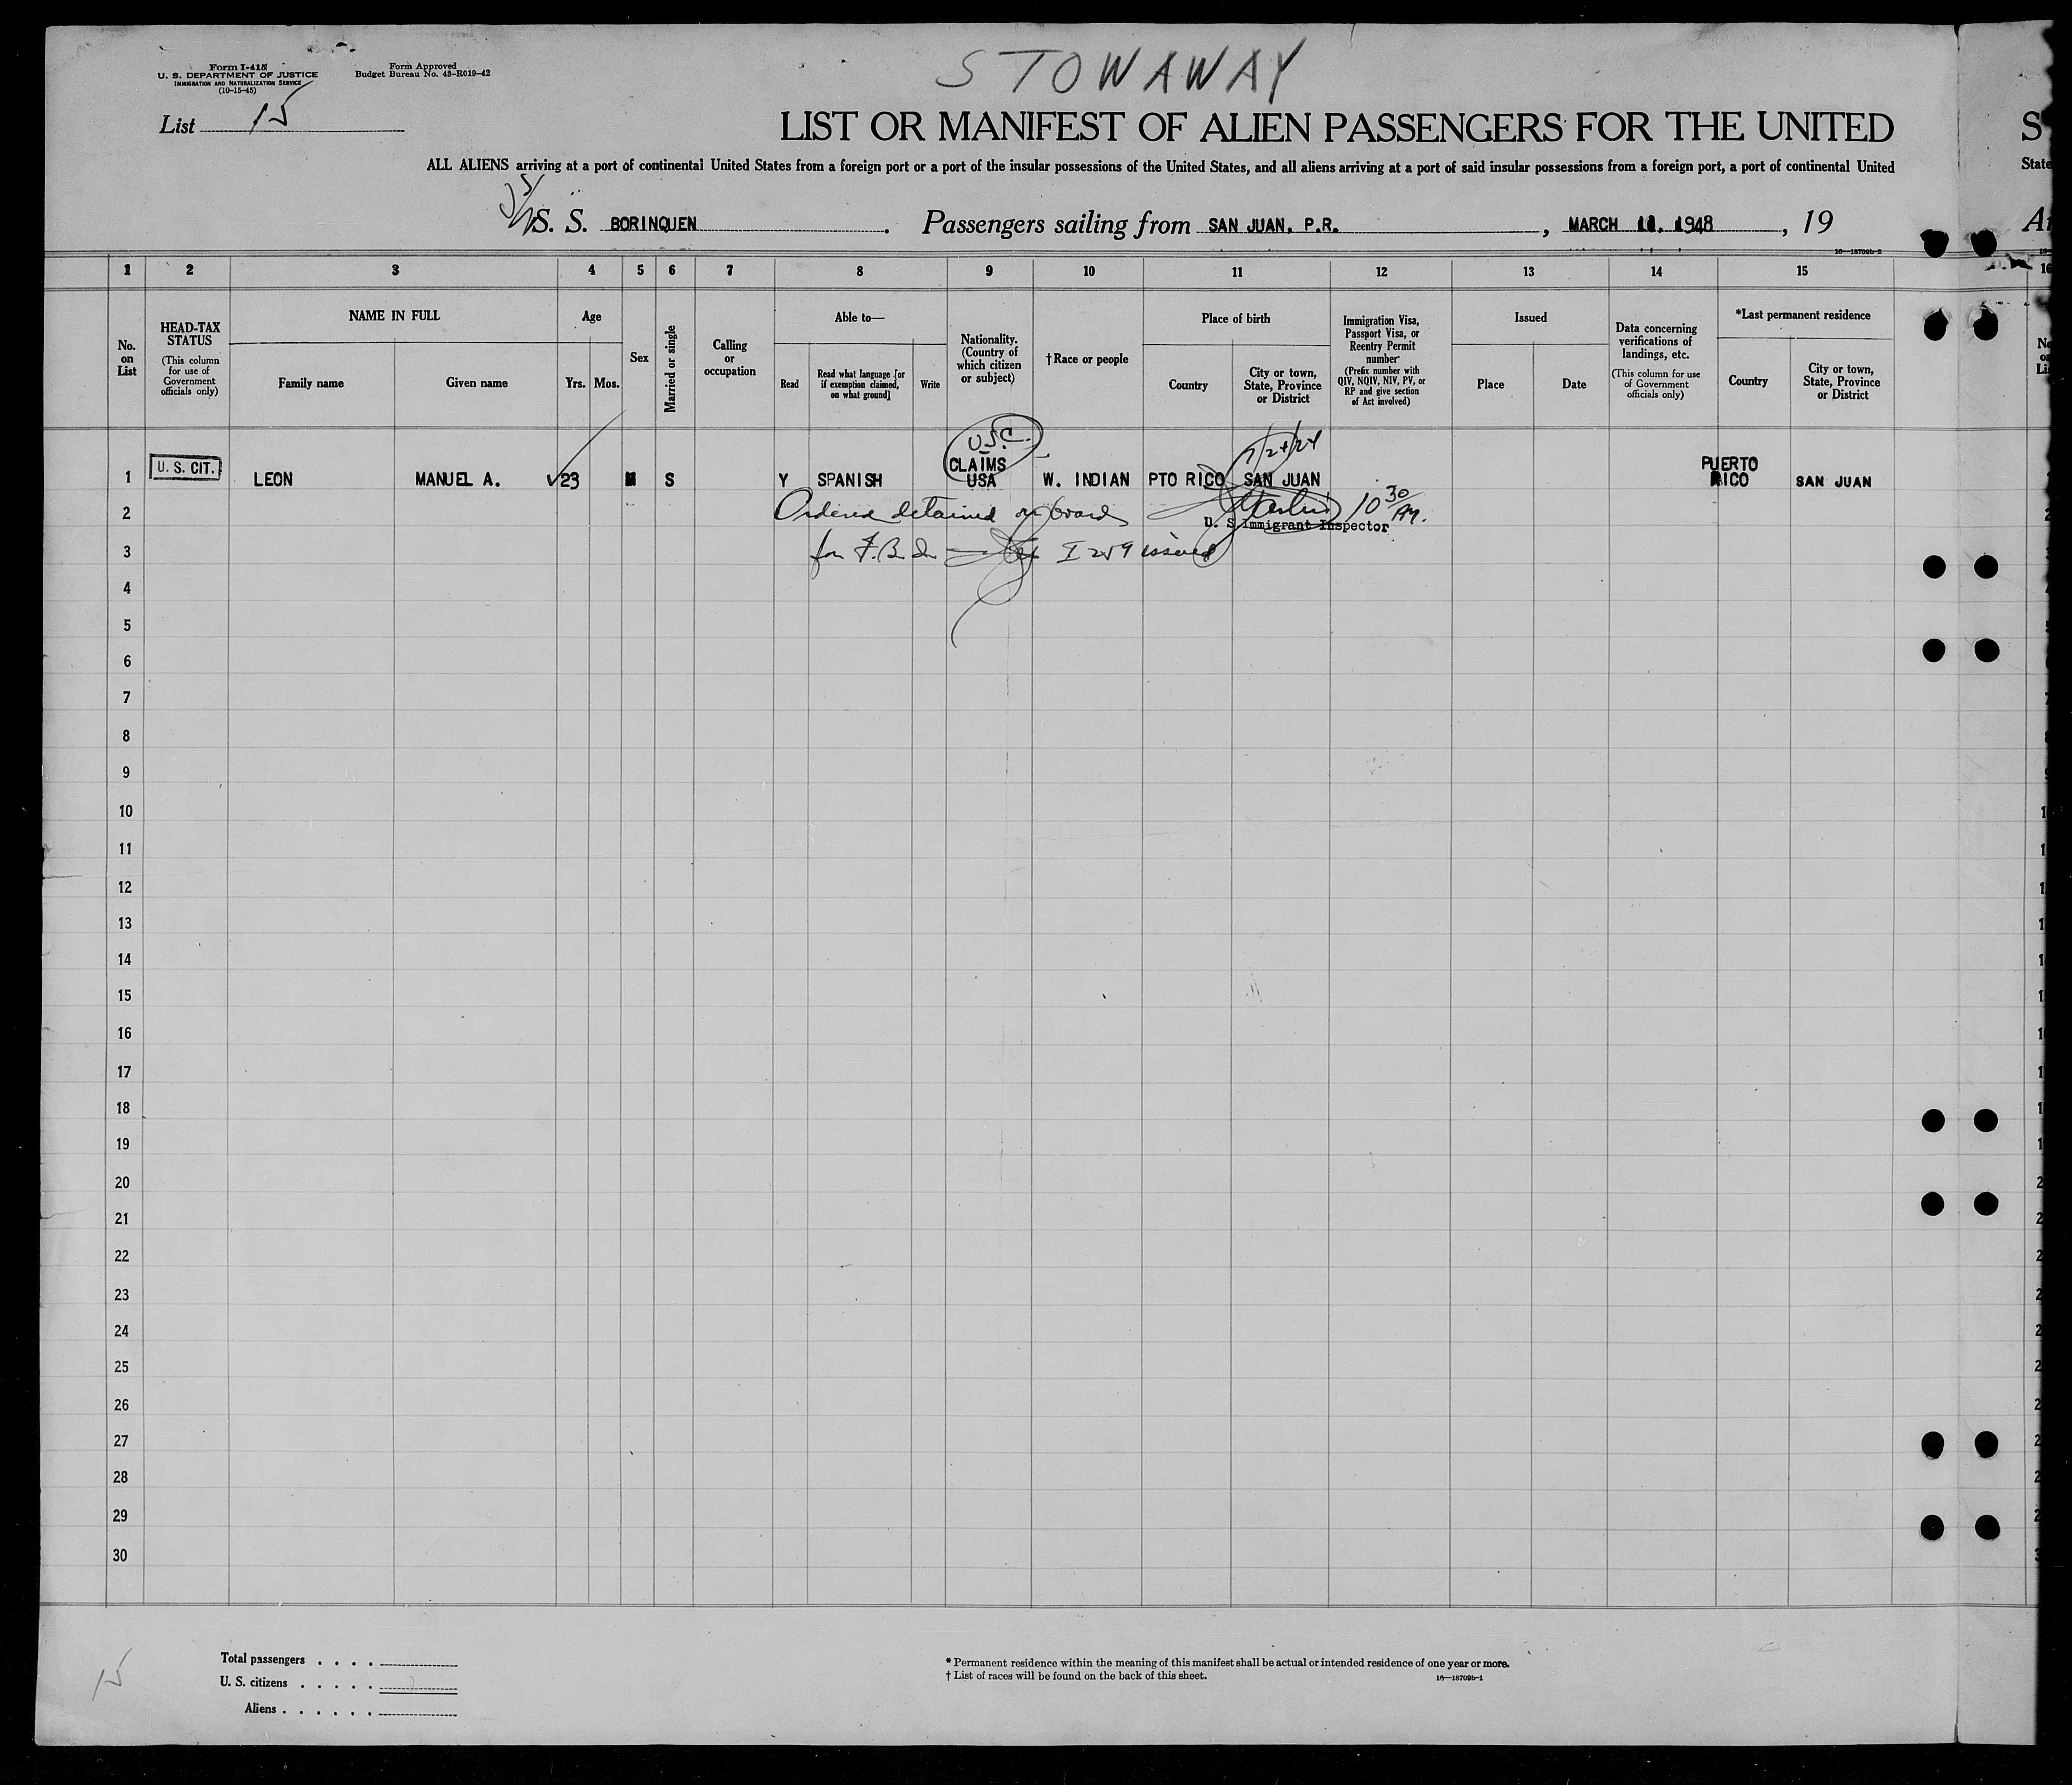 STOWAWAY
Form I-415
U. S. DEPARTMENT OF JUSTICE
IMMIGRATION AND NATURALIZATION SERVICE
(10-15-45)
Form Approved
Budget Bureau No. 43-R019-42
List 15
LIST OR MANIFEST OF ALIEN PASSENGERS FOR THE UNITED S
ALL ALIENS arriving at a port of continental United States from a foreign port or a port of the insular possessions of the United States, and all aliens arriving at a port of said insular possessions from a foreign port, a port of continental United State
S. S. BORINQUEN. Passengers sailing from SAN JUAN, P.R., MARCH 11, 1948, 19
16—18709b-2
1 2 3 4 5 6 7 8 9 10 11 12 13 14 15 16
No. on List
HEAD-TAX STATUS
(This column for use of Government officials only)
NAME IN FULL
Family name
Given name
Age
Yrs. Mos.
Sex
Married or single
Calling or occupation
Able to—
Read
Read what language [or if exemption claimed, on what ground]
Write
Nationality. (Country of which citizen or subject)
†Race or people
Place of birth
Country
City or town, State, Province or District
Immigration Visa, Passport Visa, or Reentry Permit number
(Prefix number with QIV, NQIV, NIV, PV, or RP and give section of Act involved)
Issued
Place
Date
Data concerning verifications of landings, etc.
(This column for use of Government officials only)
*Last permanent residence
Country
City or town, State, Province or District
U.S.C. 7/24/24
1 U. S. CIT. LEON MANUEL A. 23 M S Y SPANISH CLAIMS USA W. INDIAN PTO RICO SAN JUAN PUERTO RICO SAN JUAN
2 Ordered detained on board 10 30 AM.
U. S. Immigrant Inspector
3 for F.B.I. I 259 issued
4
5
6
7
8
9
10
11
12
13
14
15
16
17
18
19
20
21
22
23
24
25
26
27
28
29
30
15
Total passengers . . . .
U. S. citizens . . . . .
Aliens . . . . . .
* Permanent residence within the meaning of this manifest shall be actual or intended residence of one year or more.
† List of races will be found on the back of this sheet.
16—18709b-1